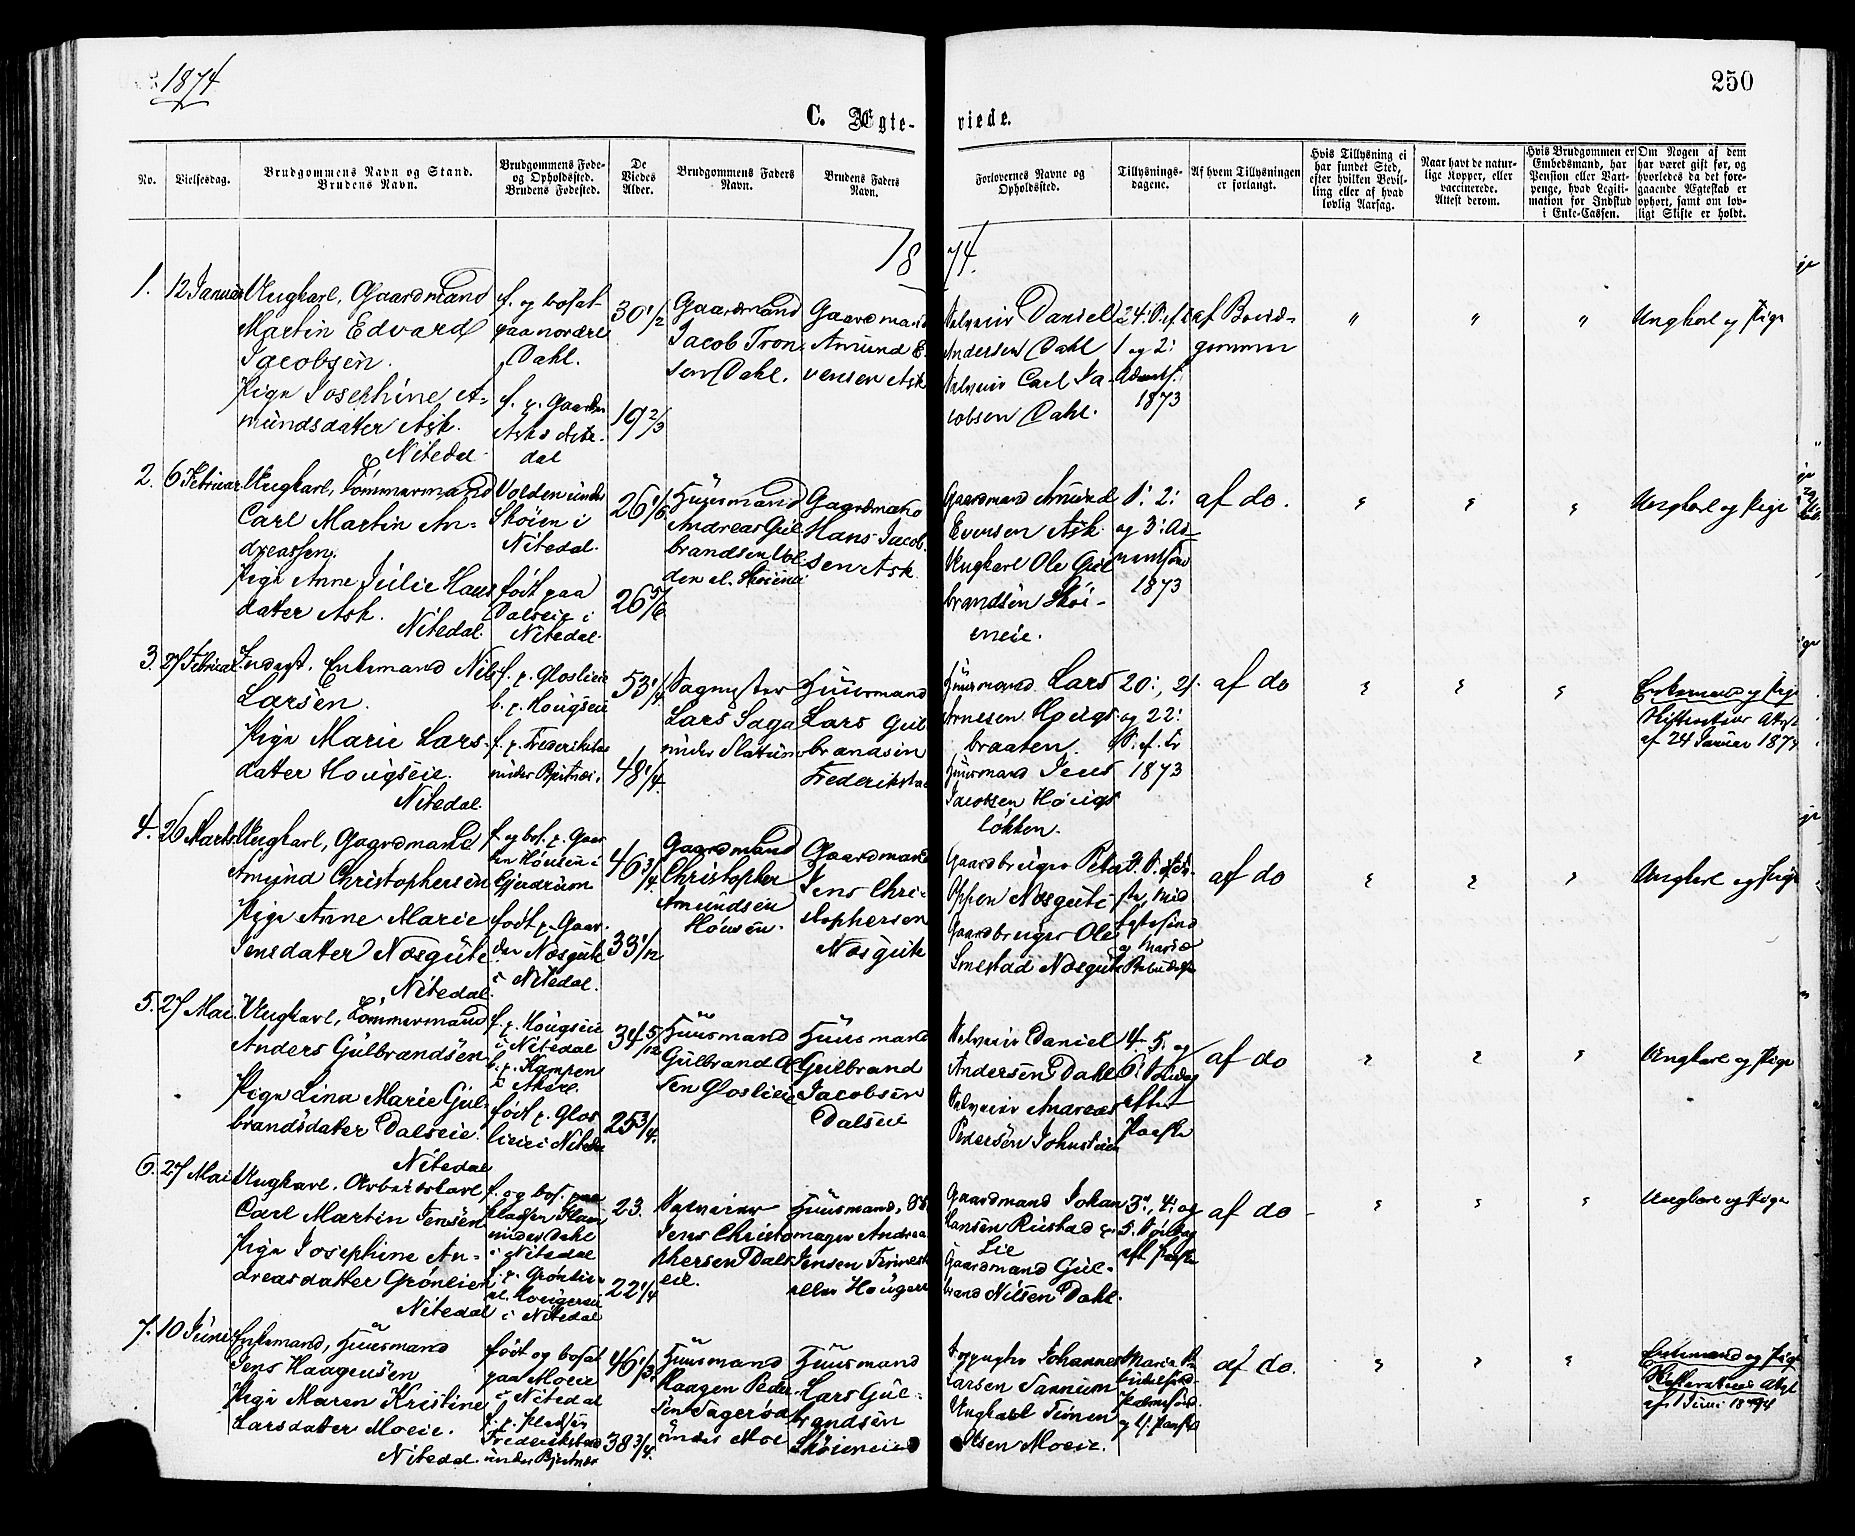 1874
250
C. Ægte-
viede.
No.
Vielsesdag.
Brudgommens Navn og Stand.
Brudens Navn.
Brudgommens Føde-
og Opholdssted.
Brudens Fødested.
De
Viedes
Alder.
Brudgommens Faders
Navn.
Brudens Faders
Navn.
Forlovernes Navne og
Opholdssted.
Tillysnings-
dagene.
Af hvem Tillysningen
er forlangt.
Hvis Tillysning ei
har fundet Sted,
efter hvilken Bevil-
ling eller af hvad
lovlig Aarsag.
Naar havt de natur-
lige Kopper, eller
vaccinerede.
Attest derom.
Hvis Brudgommen er
Embedsmand, har
Pension eller Vart-
penge, hvad Legiti-
mation for Indskud
i Enke-Cassen.
Om Nogen af dem
har været gift før, og
hvorledes da det fore-
gaaende Ægteskab er
ophørt, samt om lov-
ligt Skifte er holdt.
1874.
1.
12 Januar
Ungkarl, Gaardmand
Martin Edvard
Jacobsen.
Pige Josephine A-
mundsdatter Ask.
Nitedal.
f. og bosat
paa nordre
Dahl.
f. p. Gaarden
Ask
dal
30 1/2
19 2/3
Gaardmand
Jacob Tron
sen Dahl.
Gaardmand
Amund E-
vensen Ask
Selveier Daniel
Andersen Dahl
Selveier Carl Ja-
cobsen Dahl.
24. S. e. f.
1 og 2:
Advents.
1873
af Brud-
gommen
" " "
Ungkarl og Pige
2.
6 Februar
Ungkarl, Tømmermand
Carl Martin An-
dreassen.
Pige Anne Julie Hans
datter Ask.
Nitedal.
Volden under
Skøien i
Nitedal.
født paa
Dalseie i
Nitedal.
26 1/6
26 5/6
Huusmand
Andreas Gul
brandsen Vol
den
Gaardmand
Hans Jacob-
sen Ask
Gaardmand Amund
Evensen Ask
Ungkarl Ole Gul
brandsen Skøi-
eneie.
1: 2:
og 3: Ad-
ventsønd
1873
af do.
" " "
Ungkarl og Pige
3.
27 Februar
Inderst, Enkemand Nils
Larsen.
Pige Marie Lars-
datter Hougseie.
Nitedal.
f. p. Glosliie
b. p. Hougseie
f. p. Frederikstad
under
53 1/4
48 1/4.
Sagmester
Lars Saga
under Slattum
Huusmand
Lars Gul
brandsen
Frederikstad
Huusmand Lars
Arnesen Hougs
braaten.
Huusmand Jens
Jacobsen Hougs
løkken.
20:, 21.
og 22:
S. e. Tr
1873
af do
" " "
Enkemand og Pige
Skifte
af 24 Januar 1874
4.
26 Marts
Ungkarl, Gaardmand
Amund Christophersen
Pige Anne Marie
Jensdatter Næsgute
Nitedal.
f. og bos. p. Gaar
den Hønsen i
Gjerdrum
født p. Gaar-
den Næsgute
i Nitedal.
46 3/4.
33 1/12
Gaardmand
Christopher
Amundsen
Hønsen.
Gaardmand
Jens Chri-
stophersen
Næsgute
Gaardbruger Peter
Oppen Næsgute
Gaardbruger Ole
Smestad Næsgute
og Mariæ
af do
" " "
Ungkarl og Pige
5.
27 Mai.
Ungkarl, Tømmermand
Anders Gulbrandsen
Pige Lina Marie Gul-
brandsdatter Dalseie.
Nitedal
f. p. Hougseie
i Nitedal
b. p. Kampen
i Aker.
født p. Glos
lieie i Nitedal
34 5/12
25 3/4.
Huusmand
Gulbrand Ol
sen Glosliie
Huusmand
Gulbrand
Jacobsen
Dalseie
Selveier Daniel
Andersen Dahl
Selveier Andreas
Pedersen
4. 5. og
6: Søndag
efter
Paaske
af do
" " "
Ungkarl og Pige
6.
27 Mai
Ungkarl, Arbeidskarl
Carl Martin Jensen
Pige Josephine An-
dreasdatter Grønlien
Nitedal
f. og bos. paa
Pladsen
under Dahl
i Nitedal
f. p. Grønlien
i Nitedal
23.
22 1/4
Selveier
Jens Christo
phersen Dals
eie.
Huusmand, Sko
mager Andrea
Jensen
eller
Gaardmand Johan
Hansen Rustad
Lie
Gaardmand Gul-
brand Nilsen Dahl.
3:, 4: og
5. Søndag
eft. Paaske
af do
" " "
Ungkarl og Pige
7.
10 Juni
Enkemand, Huusmand
Jens Haagensen
Pige Maren Kristine
Larsdatter Moeie.
Nitedal.
født og bosat
paa Moeie
i Nitedal
f. p. Pladsen
Frederikstad
under
46 1/3
38 3/4.
Huusmand
Haagen Peder
sen
under Moe
Huusmand
Lars Gul-
brandsen
Skøieneie
Johannes
Larsen Sannum
Ungkarl Simen
Olsen Moeie.
Maria Be
budelsesd.
Palmesønd.
og 1. Paaske
af do.
" " "
Enkemand og Pige
af 1 Juni 1874